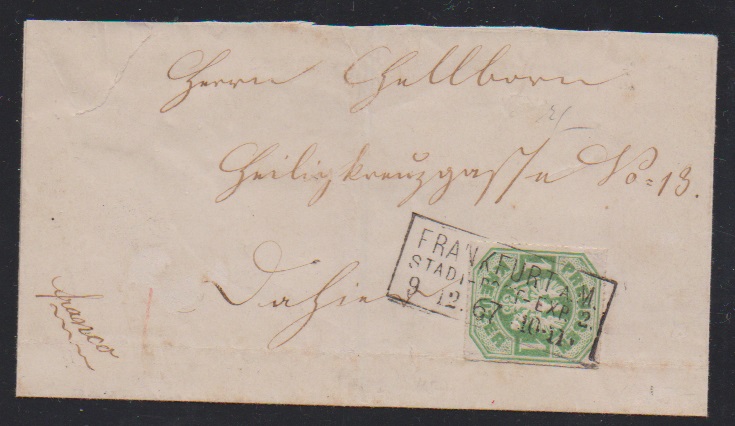 Herrn Chellborn
Heiligkreuzgasse No = 13.
Dahier
franco
FRANKFURT A. M.
STADT-POST-EXP. 2.
9 12. 67 10-11.